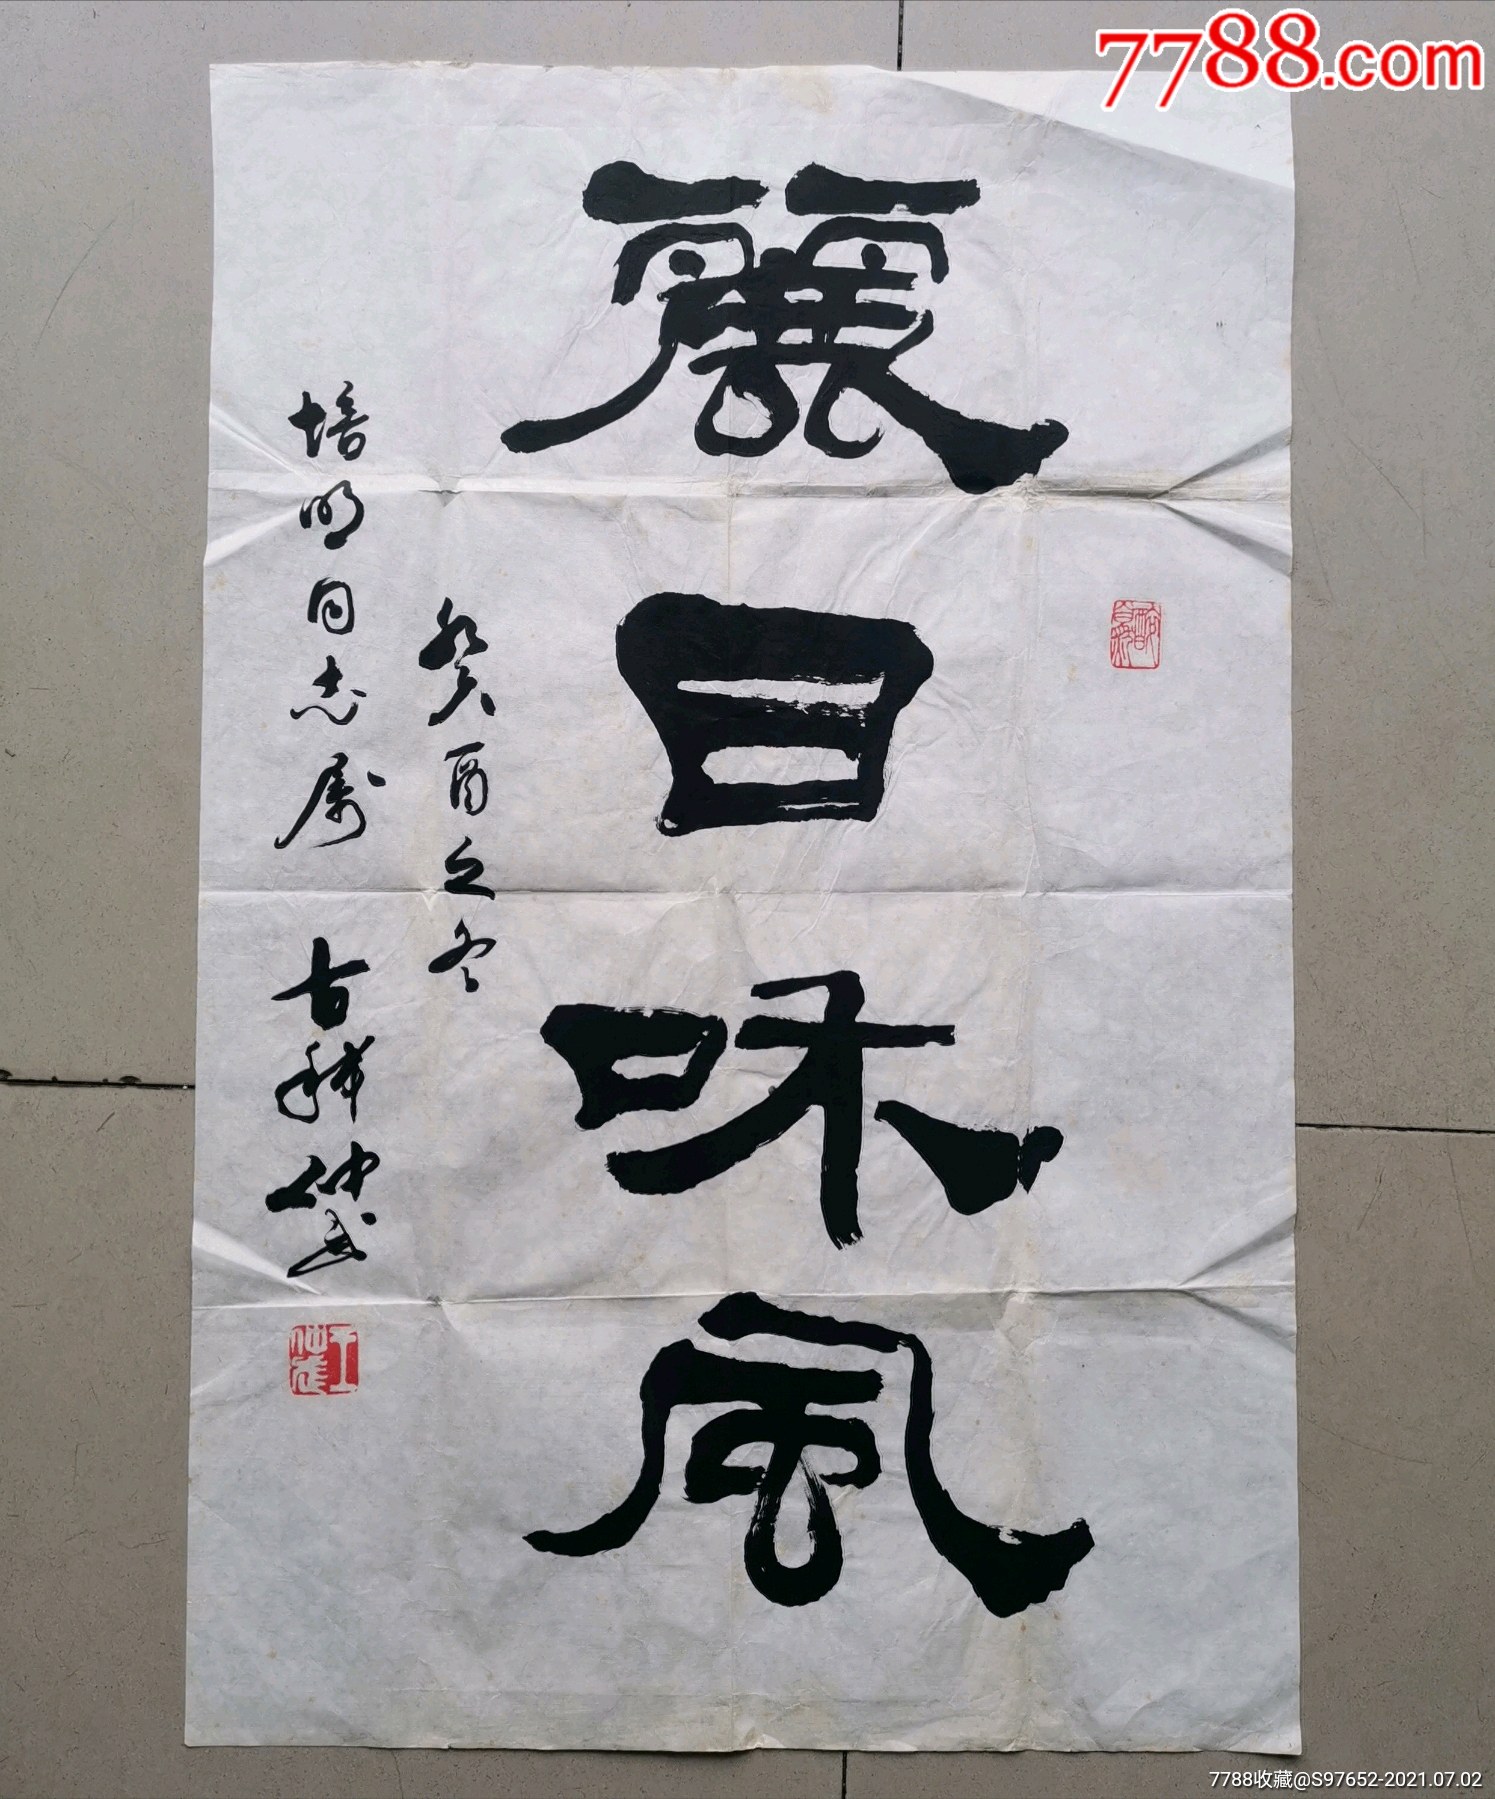 7788.com
麗日和風
癸酉之冬
培明同志属
古稀仲武
7788收藏@S97652-2021.07.02